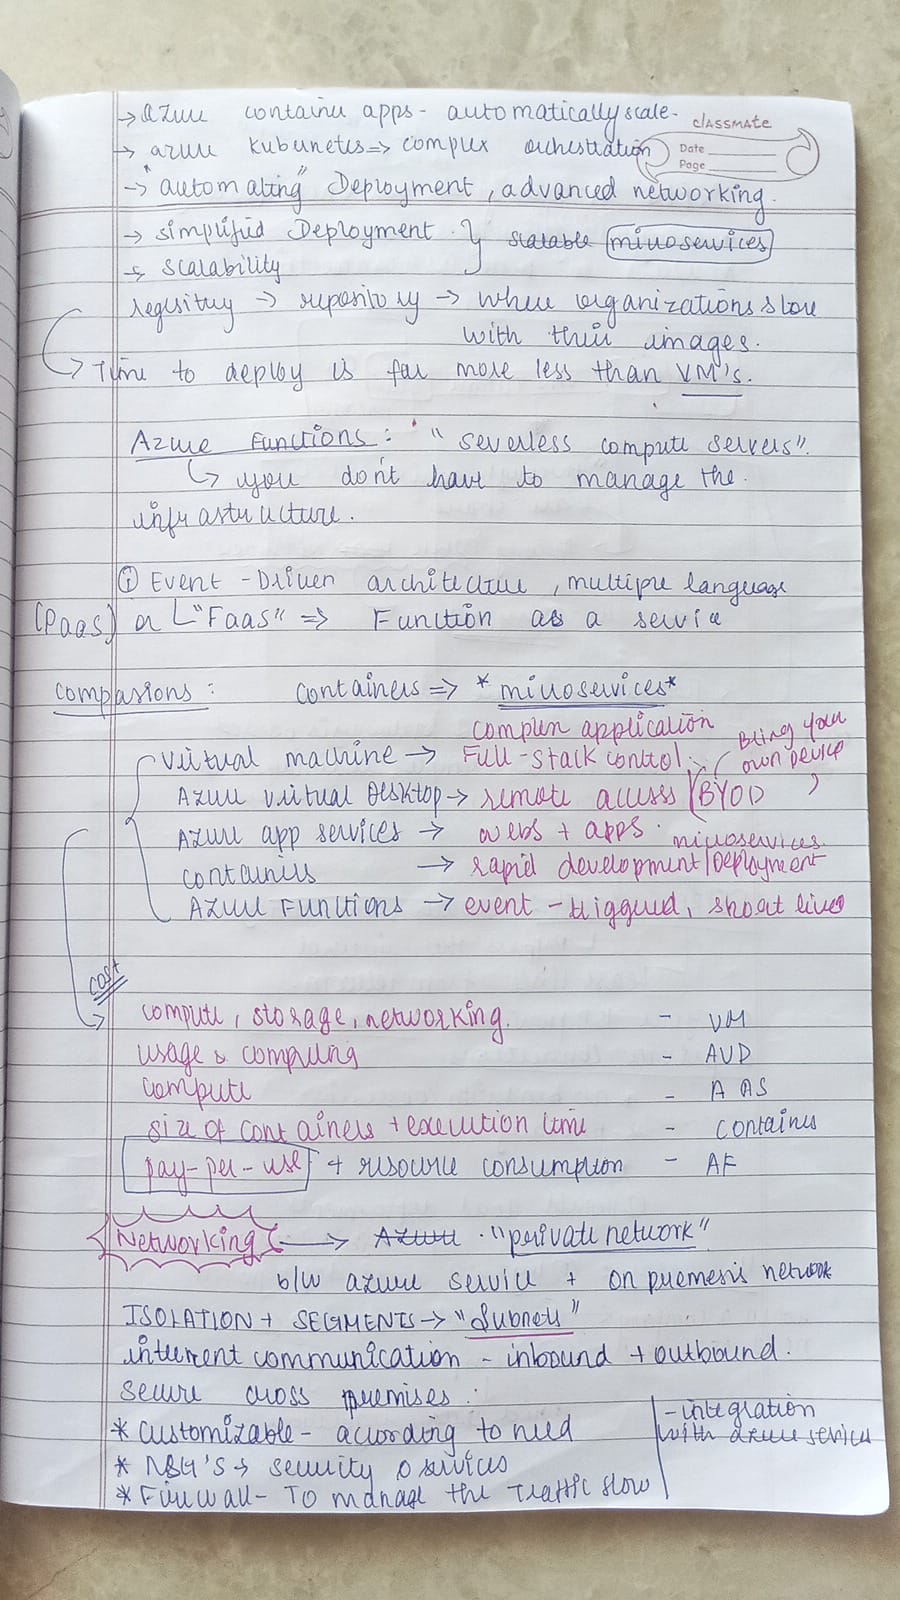 → Azure container apps - automatically scale.
classmate
Date
Page
→ azure kubunetes => complex orchestration
→ "automating" Deployment, advanced networking.
→ simplified Deployment
→ scalability
scalable microservices
registry → repository → where organizations store
with their images.
→ Time to deploy is far more less than VM's.
Azure Functions: "severless compute servers".
↳ you don't have to manage the
infrastructure.
① Event-Driven architecture, multiple language
(PaaS) or ↳ "FaaS" => Function as a service
Comparisions: containers => *microservices*
complex application
Virtual machine → Full-stack control.
Bring your
own Device
Azure virtual Desktop → remote access / (BYOD)
Azure app services → webs + apps.
microservices.
containers → rapid development/Deployment
Azure Functions → event-triggered, short lived
cost
compute, storage, networking. - VM
usage & computing - AVD
compute - AAS
size of containers + execution time - containers
pay-per-use + resource consumption - AF
Networking → Azure "private network"
b/w azure service + on premesis network
ISOLATION + SEGMENTS → "Subnets"
internent communication - inbound + outbound.
secure cross premises:
* Customizable - according to need
- integration
with azure services
* NSG's → security services
* Firewall - To manage the traffic flow